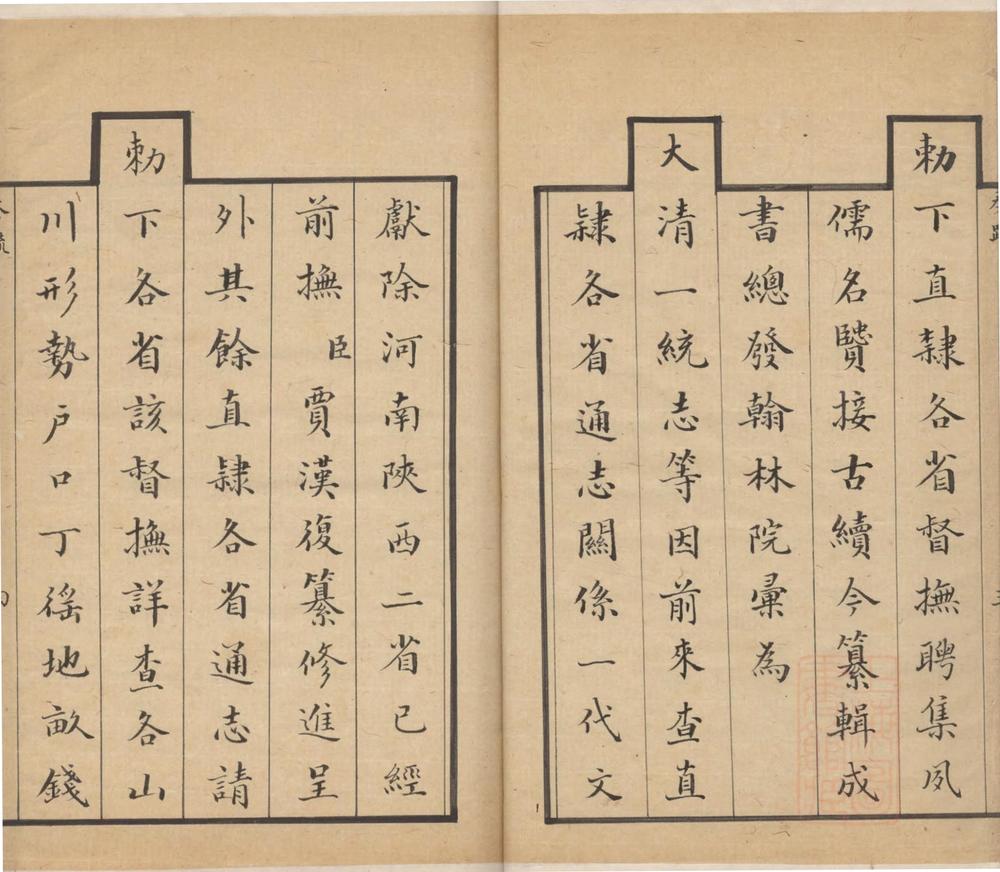 勅下直隸各省督撫聘集夙
儒名賢接古續今纂輯成
書總發翰林院彙為
大清一統志等因前來查直
隸各省通志關係一代文
獻除河南陝西二省已經
前撫臣賈漢復纂修進呈
外其餘直隸各省通志請
勅下各省該督撫詳查各山
川形勢户口丁徭地畝錢